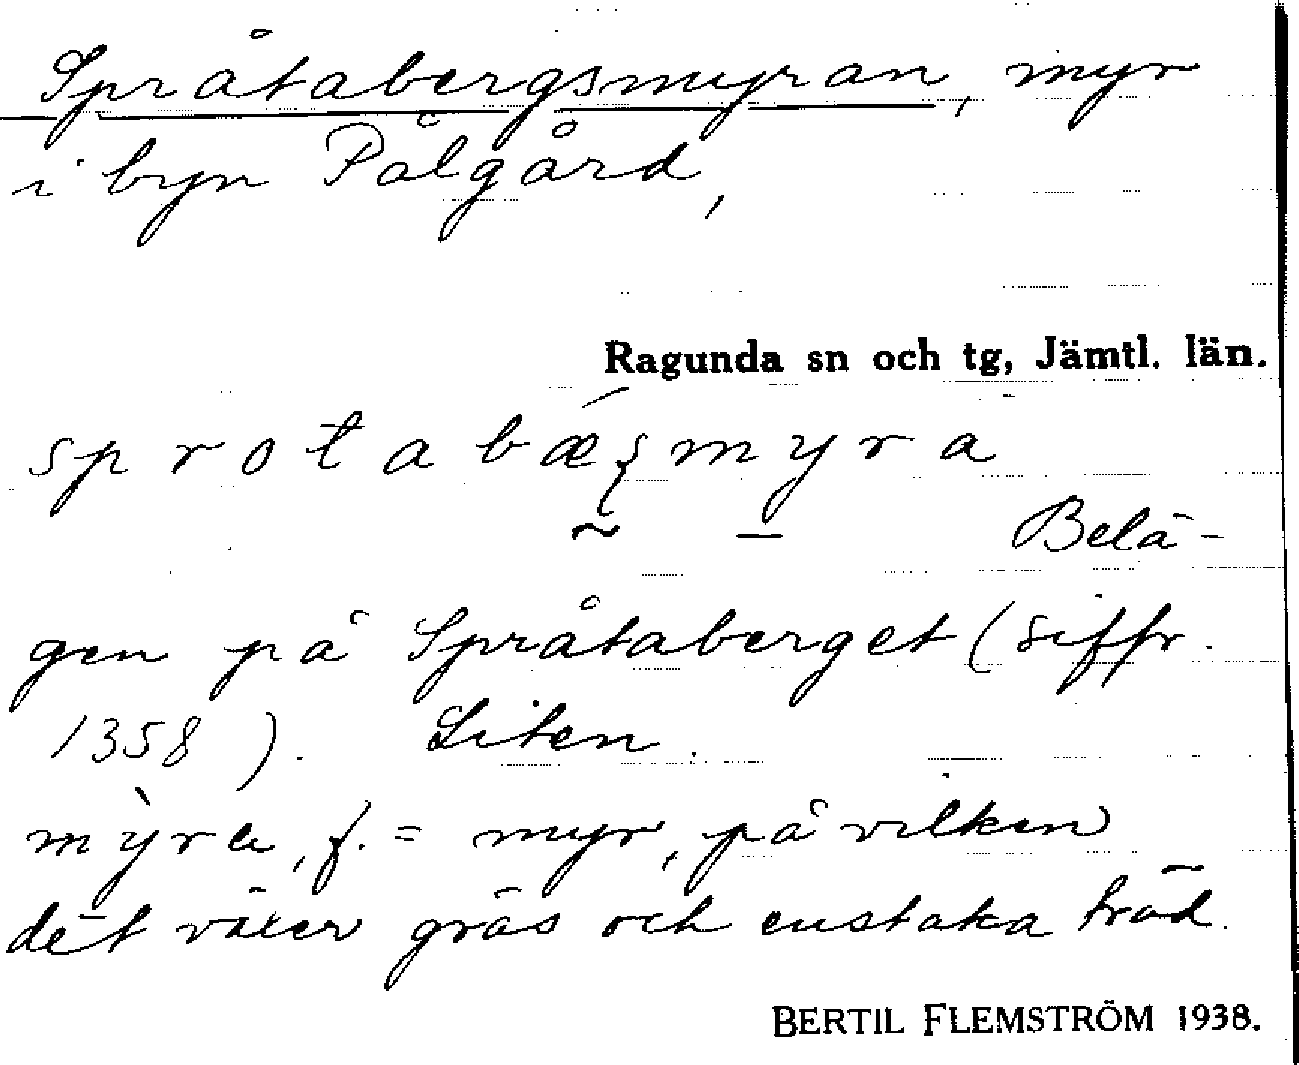 Språtabergsmyran, myr
i byn Pålgård,
Ragunda sn och tg, Jämtl. län.
sprotabǽʂmyra
Belä-
gen på Språtaberget (siffr.
1358). Liten.
mỳra, f. = myr, på vilken
det växer gräs och enstaka träd.
BERTIL FLEMSTRÖM 1938.